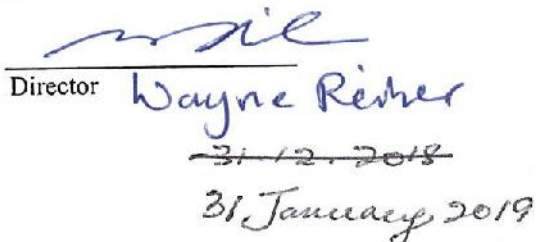 Director Wayne
31.12.2018
31 January 2019